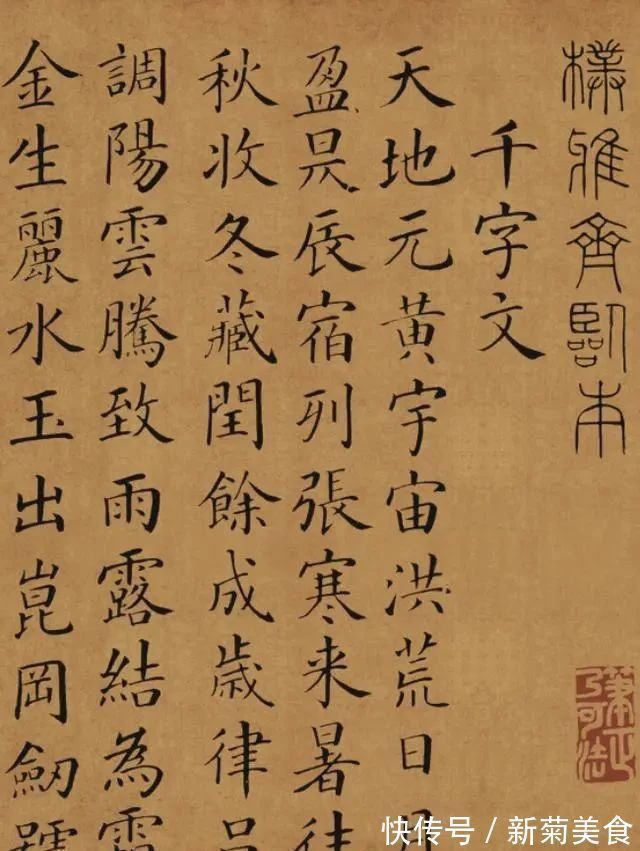 樸雅齊臨本
千字文
天地元黄宇宙洪荒日月
盈昃辰宿列張寒来暑往
秋收冬藏閏餘成歲律吕
調陽雲騰致雨露結為霜
金生麗水玉出崑岡劒號
筆正乃可法
快传号 / 新菊美食